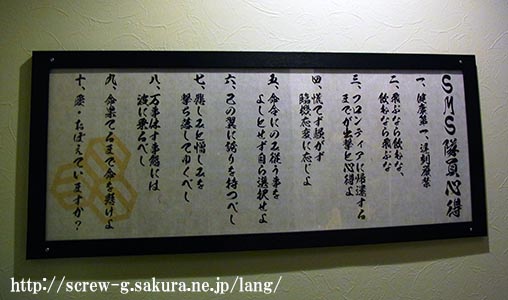 SMS隊員心得
一、健康第一、遅刻厳禁
二、飛ぶなら飲むな、
飲むなら飛ぶな
三、フロンティアに帰還する
までが出撃と心得よ
四、慌てず騒がず
臨機応変に応じよ
五、命令にのみ従う事を
よしとせず自ら選択せよ
六、己の翼に誇りを持つべし
七、悲しみと憎しみを
撃ち落してゆくべし
八、万事休す事態には
波に乗るべし
九、命果てるまで命を懸けよ
十、愛・おぼえていますか?
http://screw-g.sakura.ne.jp/lang/